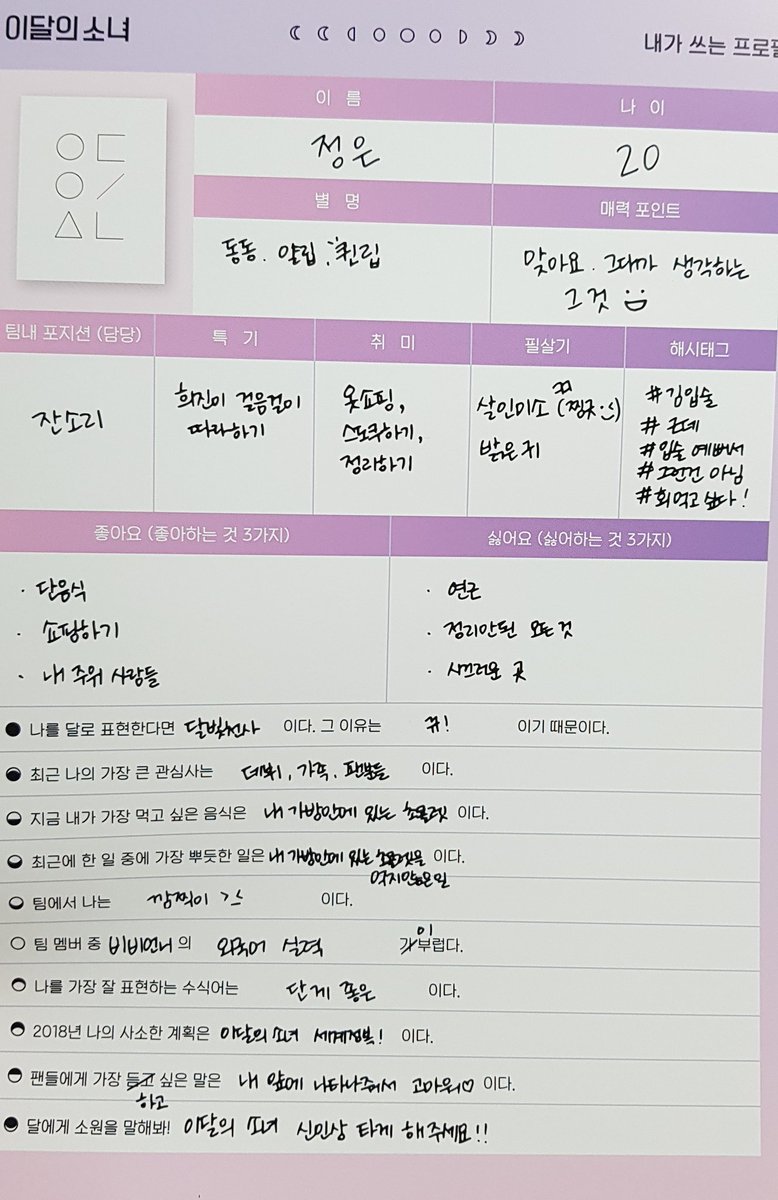 이달의 소녀
내가 쓰는 프로필
이 름
나 이
정은
20
별 명
매력 포인트
동동. 얄립. 퀸립
맞아요. 그대가 생각하는
그것
팀내 포지션 (담당)
특 기
취 미
필살기
해시태그
잔소리
희진이 걸음걸이
따라하기
옷쇼핑,
스도쿠하기,
정리하기
살인미소 (찡긋
ㅋㅋ
밝은귀
#김입술
#근데
#입술 예뻐서
#그런건 아님
#회먹고싶다!
좋아요 (좋아하는 것 3가지)
싫어요 (싫어하는 것 3가지)
· 단음식
· 쇼핑하기
· 내 주위 사람들
· 연근
· 정리안된 모든것
· 시끄러운 곳
나를 달로 표현한다면 달빛천사 이다. 그 이유는 뀨! 이기 때문이다.
최근 나의 가장 큰 관심사는 데뷔, 가족, 팬분들 이다.
지금 내가 가장 먹고 싶은 음식은 내 가방안에 있는 초콜렛 이다.
최근에 한 일 중에 가장 뿌듯한 일은 내 가방안에 있는 초콜렛을 이다.
먹지않은일
팀에서 나는 깜찍이 ㄱㅅ 이다.
팀 멤버 중 비비언니 의 외국어 실력 이 부럽다.
나를 가장 잘 표현하는 수식어는 단게 좋은 이다.
2018년 나의 사소한 계획은 이달의 소녀 세계정복! 이다.
팬들에게 가장 듣고 싶은 말은 내 앞에 나타나주어서 고마워♡ 이다.
하고
달에게 소원을 말해봐! 이달의 소녀 신인상 타게 해주세요!!